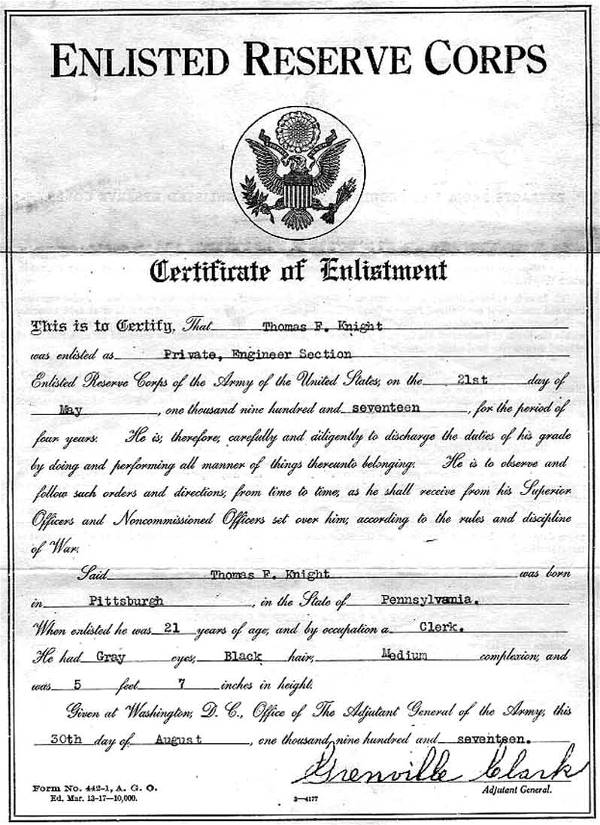 ENLISTED RESERVE CORPS
Certificate of Enlistment
This is to Certify, That Thomas F. Knight
was enlisted as Private, Engineer Section
Enlisted Reserve Corps of the Army of the United States, on the 21st day of
May, one thousand nine hundred and seventeen, for the period of
four years. He is, therefore, carefully and diligently to discharge the duties of his grade
by doing and performing all manner of things thereunto belonging. He is to observe and
follow such orders and directions, from time to time, as he shall receive from his Superior
Officers and Noncommissioned Officers set over him, according to the rules and discipline
of War.
Said Thomas F. Knight was born
in Pittsburgh, in the State of Pennsylvania.
When enlisted he was 21 years of age, and by occupation a Clerk.
He had Gray eyes, Black hair, Medium complexion, and
was 5 feet 7 inches in height.
Given at Washington, D. C., Office of The Adjutant General of the Army, this
30th day of August, one thousand nine hundred and seventeen.
Grenville Clark
Adjutant General.
Form No. 442-1, A. G. O.
Ed. Mar. 13-17—10,000.
3—4177